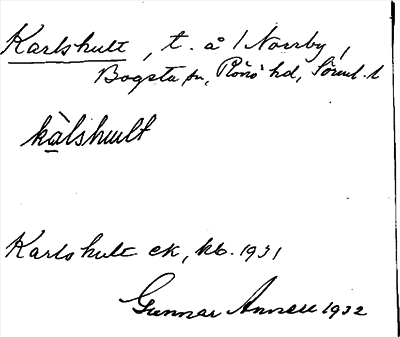 Karlshult, t. å / Norrby,
Bogsta sn, Rönö hd, Sörml. l
kàlshult
Karlshult ek, kb. 1931
Gunnar Annell 1932